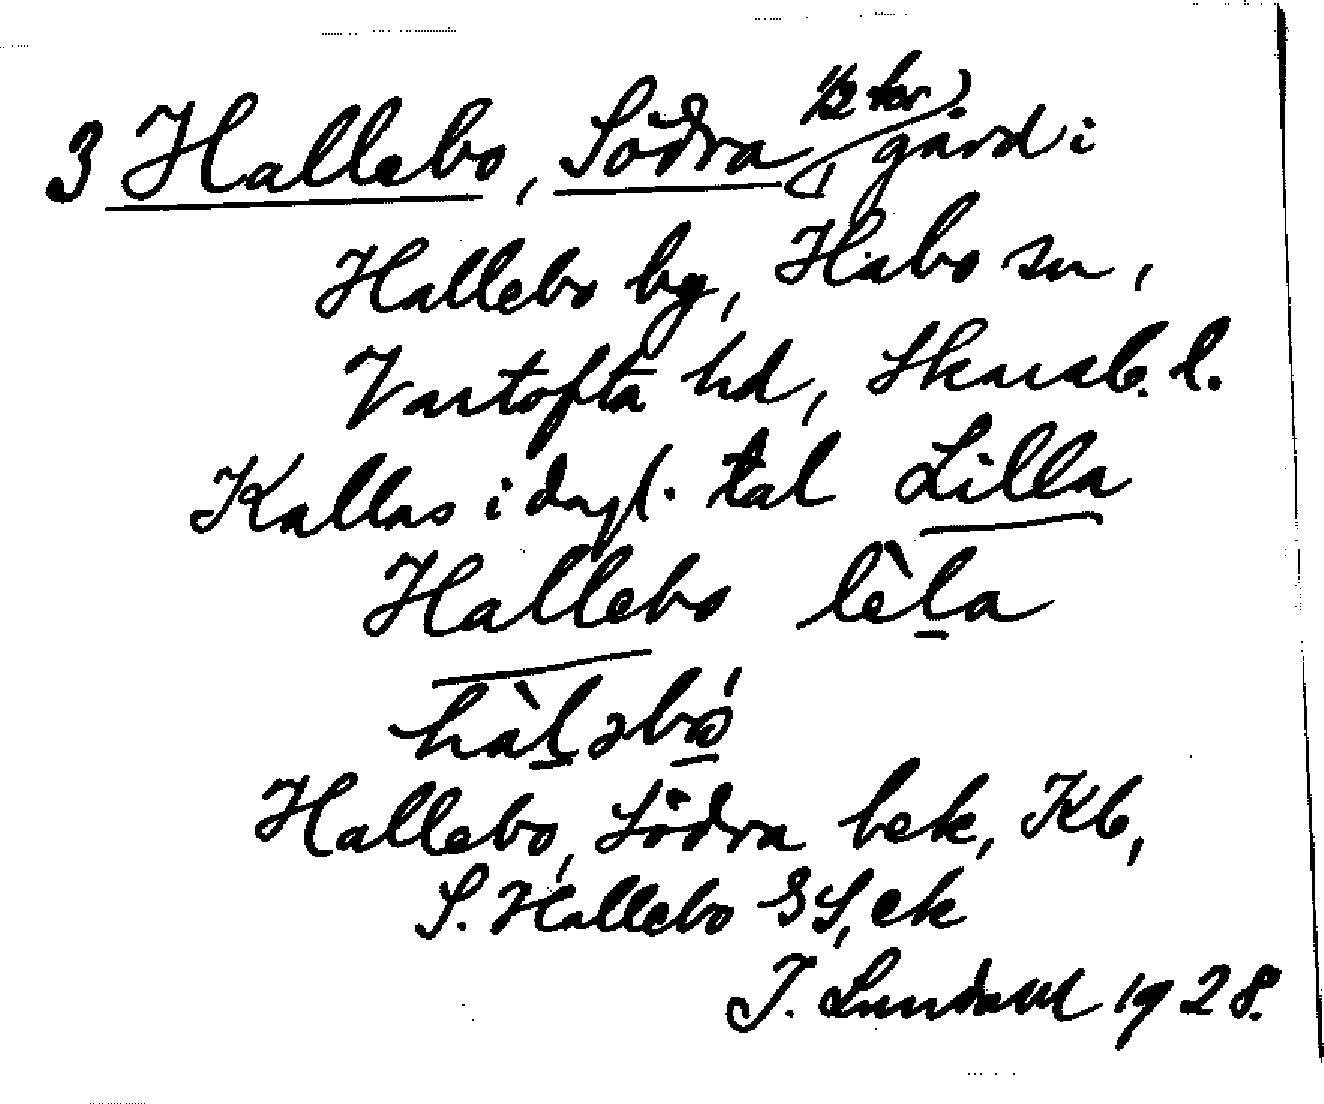 3 Hallebo, Södra (1/2 kr) gård i
Hallebo by, Habo sn,
Vartofta hd, Skarab. l.
Kallas i dagl. tal Lilla
Hallebo lèla
hàləbó
Hallebo, Södra bek, Kb,
S. Hallebo GS, ek
J. Lundahl 1928.